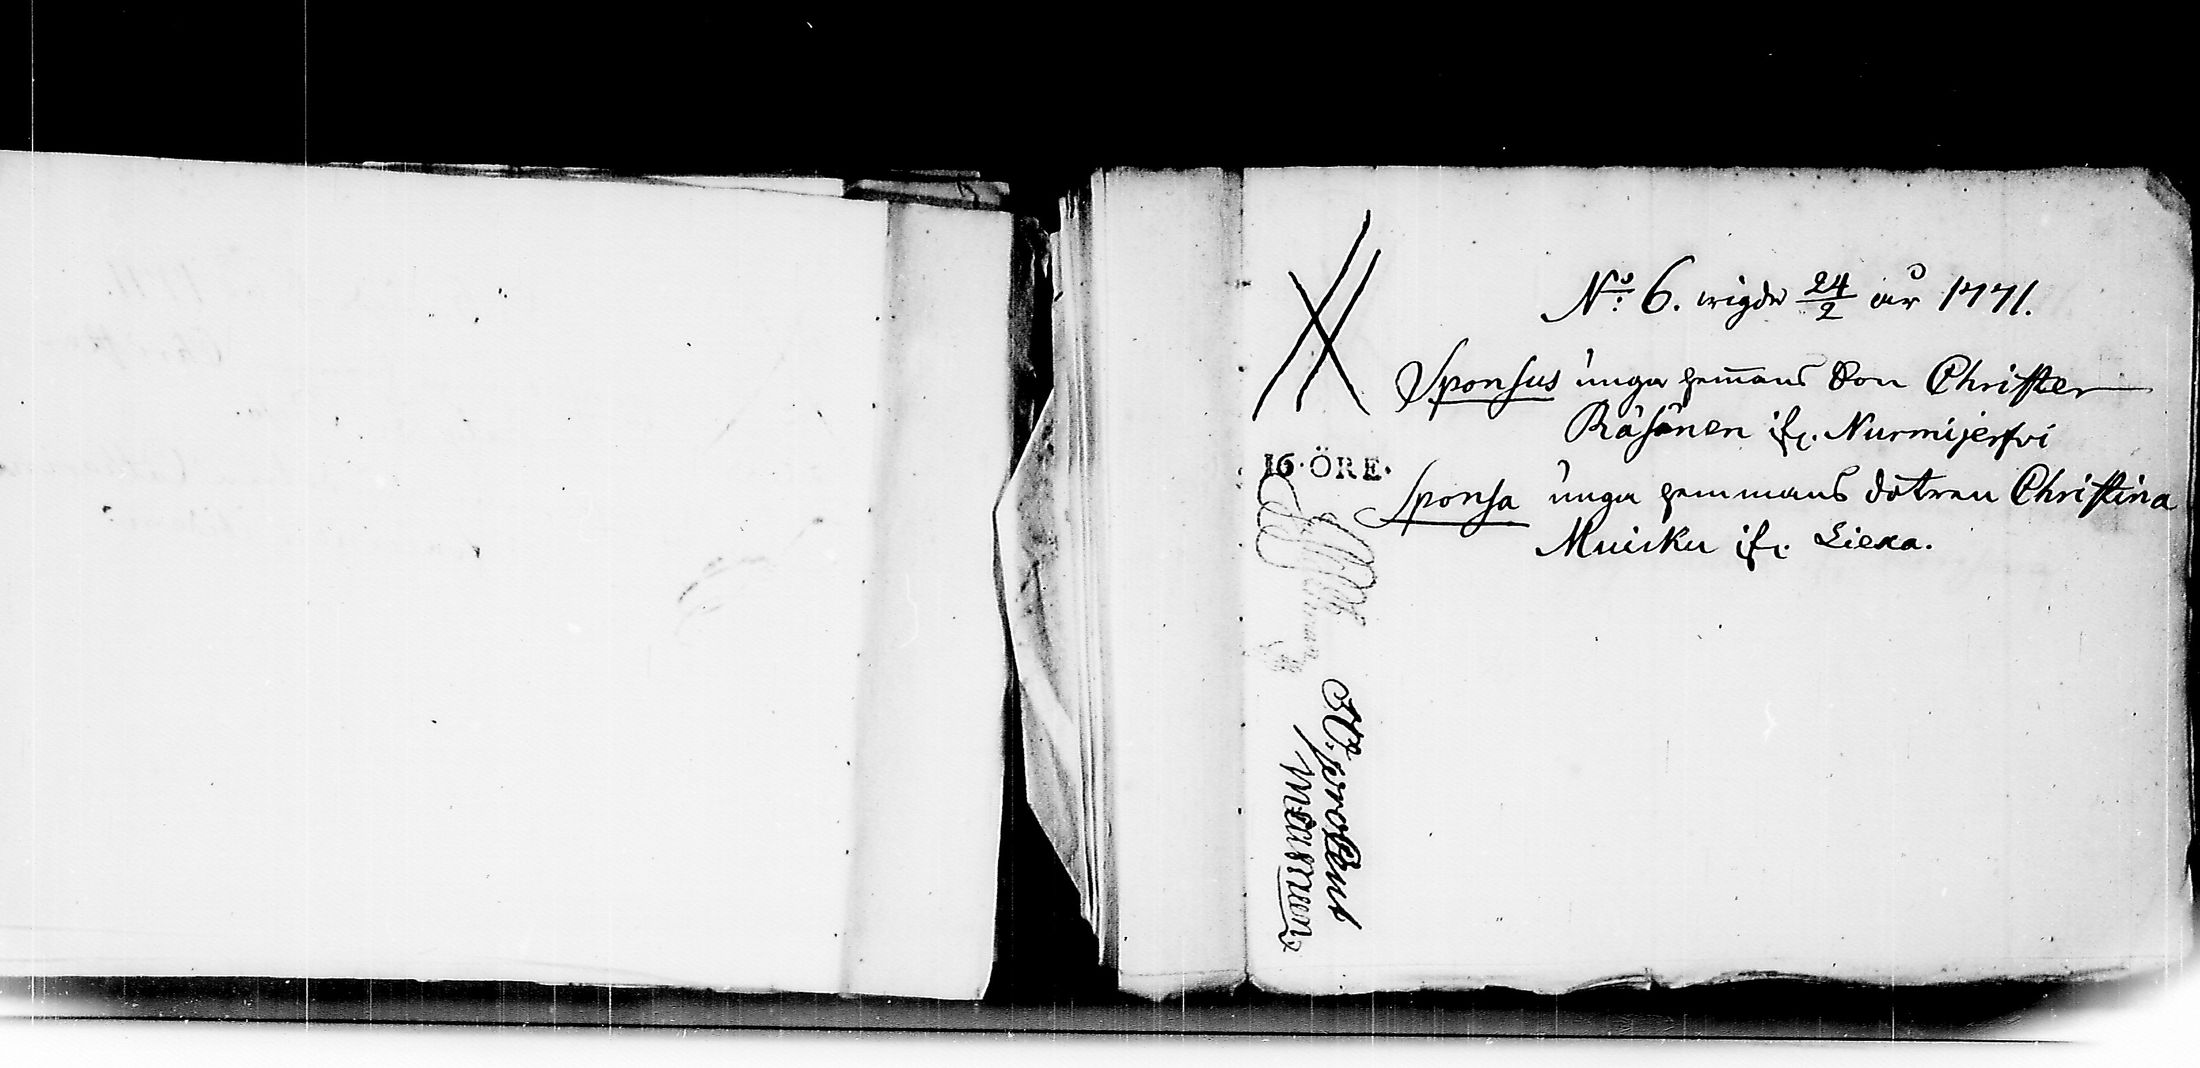 No: 6. wigde 24/2 år 1771.
Sponsus unga hem̅ans Son Christer
Räsänen ifr. Nurmijerfvi
16·ÖRE·
Sponsa unga hemmans dotren Christina
Muicku ifr. Liexa.